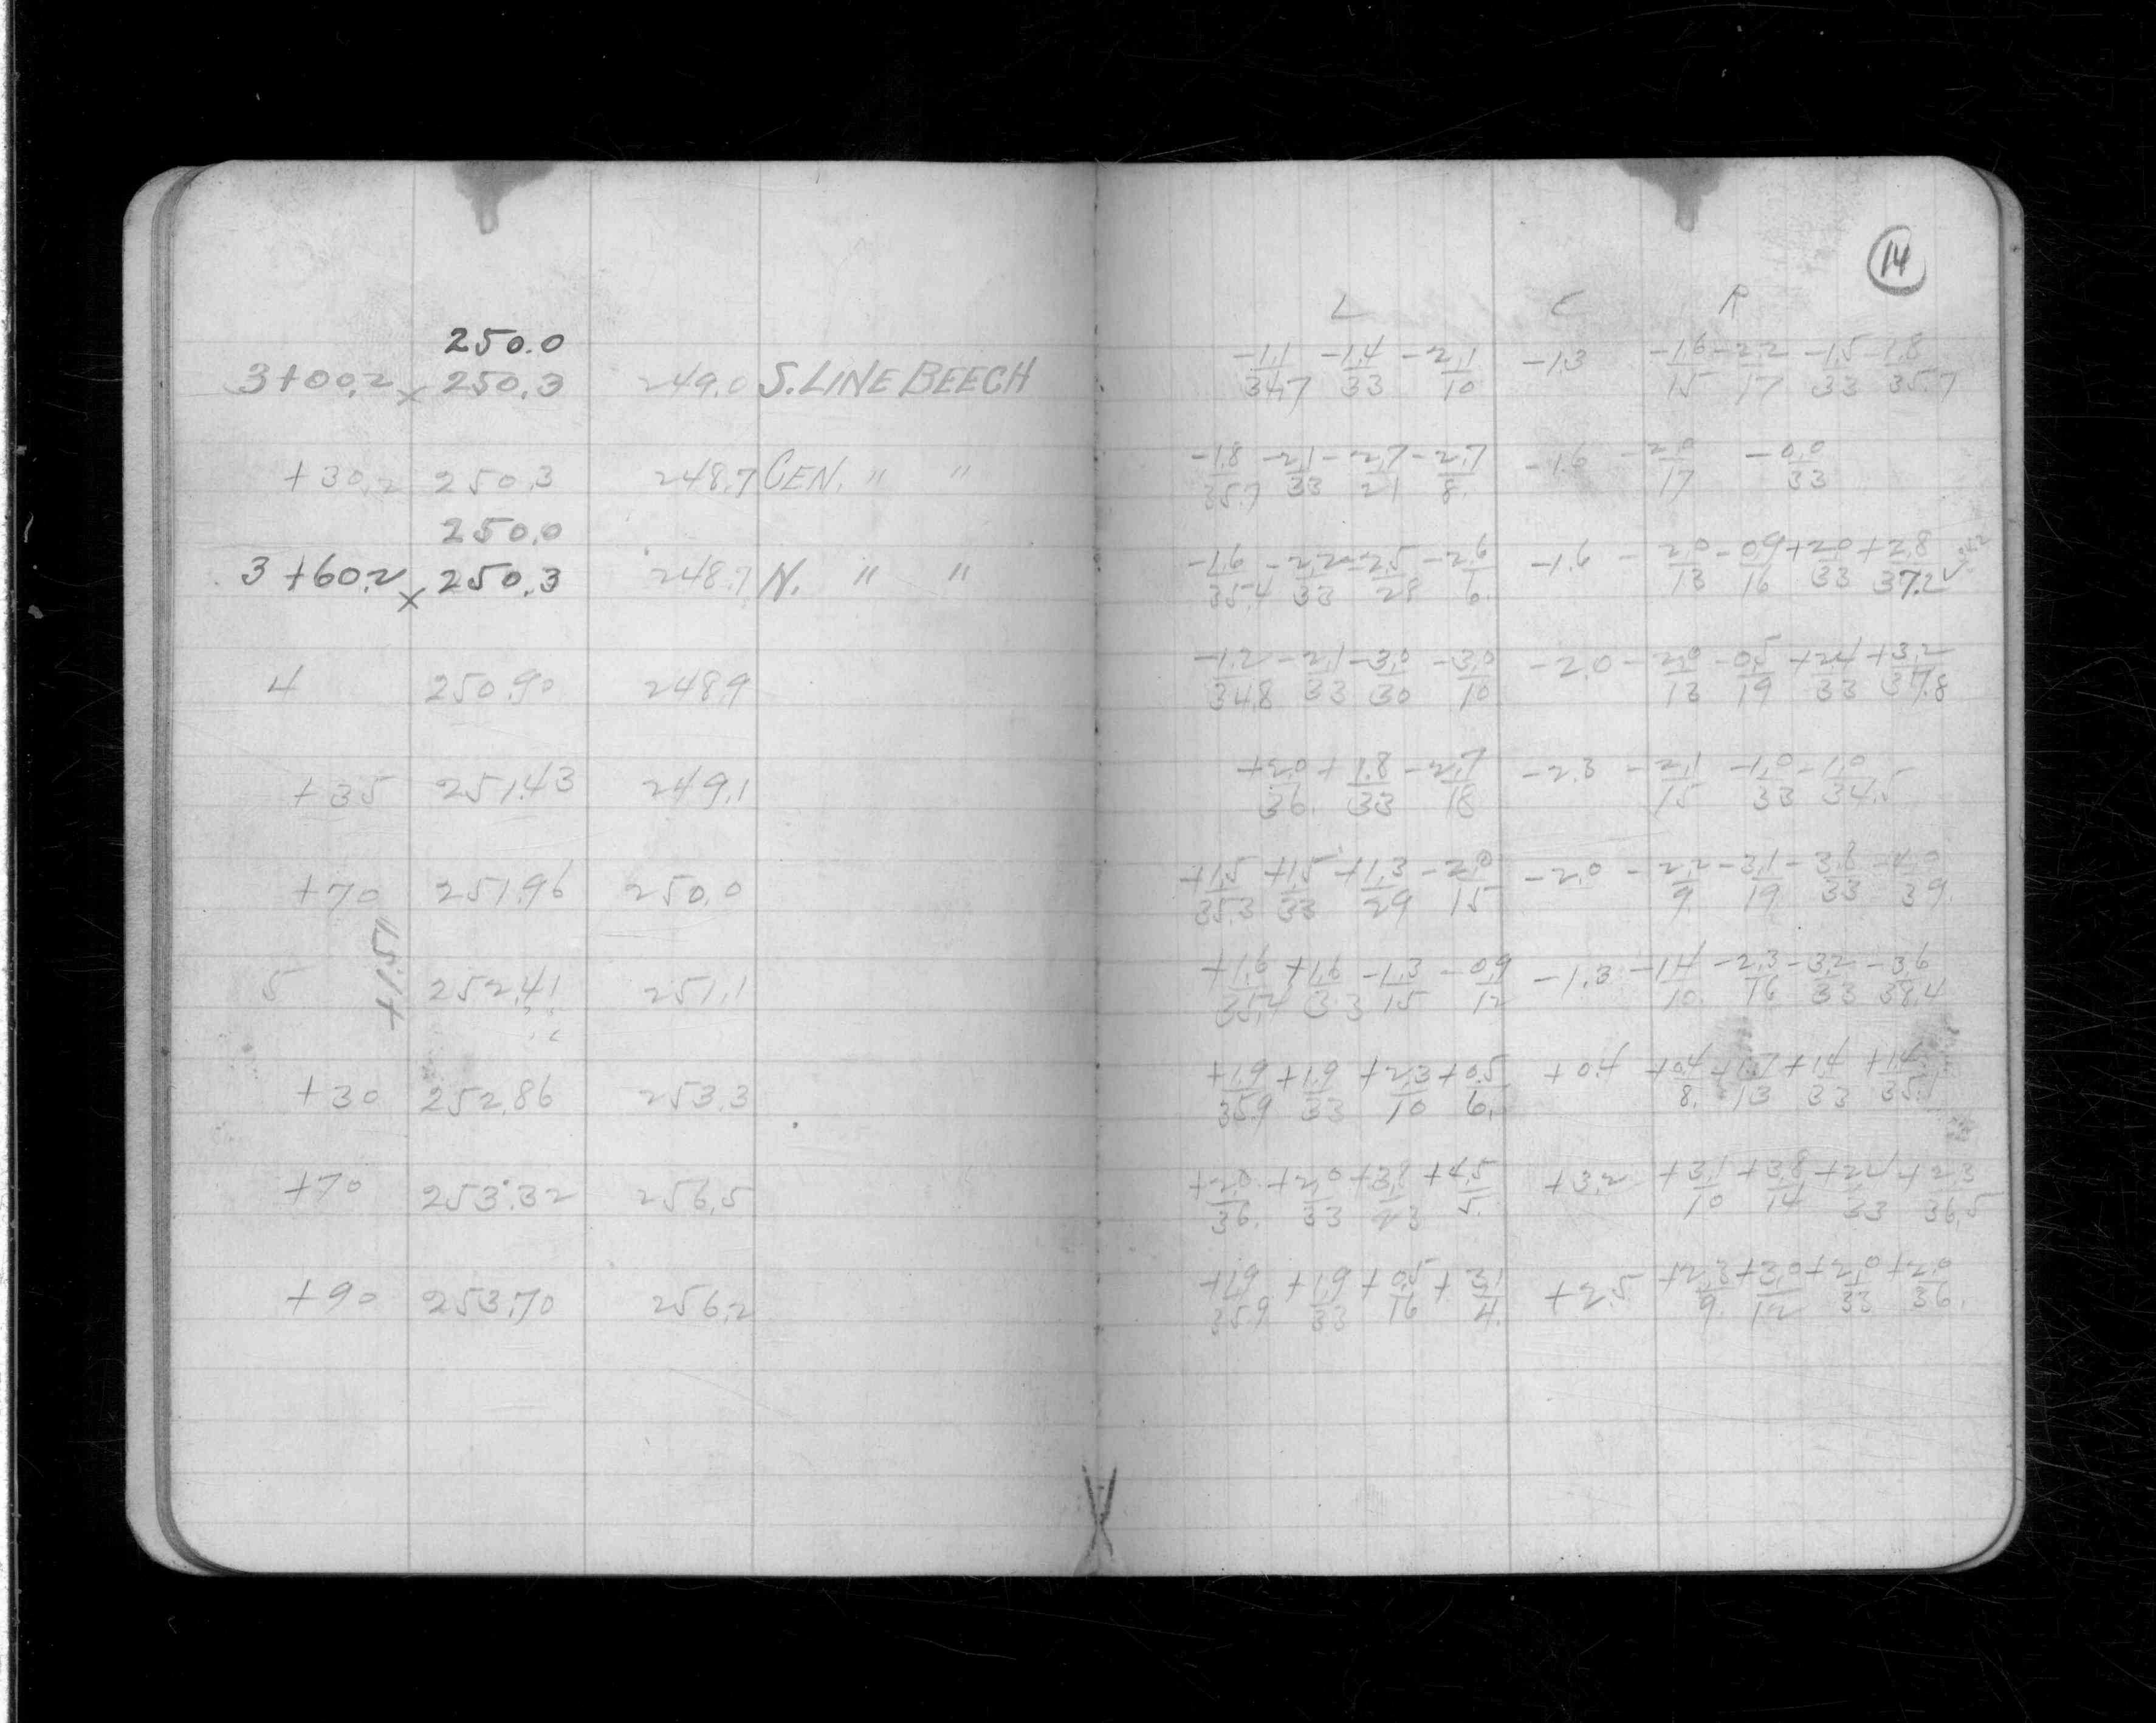 14
L C R
250.0
3+00.2 x 250.3 249.0 S. LINE BEECH -1.1/34.7 -1.4/33 -2.1/10 -1.3 -1.6/15 -2.2/17 -1.5/33 1.8/35.7
+30.2 250.3 248.7 CEN. " " -1.8/35.7 -2.1/33 -2.7/21 -2.7/8. -1.6 -2.0/17 -0.0/33
250.0
3+60.2 x 250.3 248.7 N. " " -1.6/35.4 -2.2/33 -2.5/28 -2.6/6. -1.6 -2.0/13 -0.9/16 +2.0/33 +2.8/37.2 ✓
4 250.90 248.9 -1.2/34.8 -2.1/33 -3.0/30 -3.0/10 -2.0 -2.0/13 -0.5/19 +2.4/33 +3.2/37.8
+35 251.43 249.1 +2.0/36. +1.8/33 -2.7/18 -2.3 -2.1/15 -1.0/33 -1.0/34.5
+70 251.96 250.0 +1.5/35.3 +1.5/33 +1.3/29 -2.0/15 -2.0 -2.2/9. -3.1/19 -3.8/33 -4.0/39.
+1.51
5 252.41 251.1 +1.6/35.4 +1.6/33 -1.3/15 -0.9/12 -1.3 -1.4/10. -2.3/16 -3.2/33 -3.6/38.4
+30 252.86 253.3 +1.9/35.9 +1.9/33 +2.3/10 +0.5/6. +0.4 +0.4/8. +1.7/13 +1.4/33 +1.4/35.1
+70 253.32 256.5 +2.0/36. +2.0/33 +3.8/23 +4.5/5. +3.2 +3.1/10 +3.8/14 +2.2/33 +2.3/36.5
+90 253.70 256.2 +1.9/35.9 +1.9/33 +0.5/16 +3.1/4. +2.5 +2.3/9. +3.0/12 +2.0/33 +2.0/36.